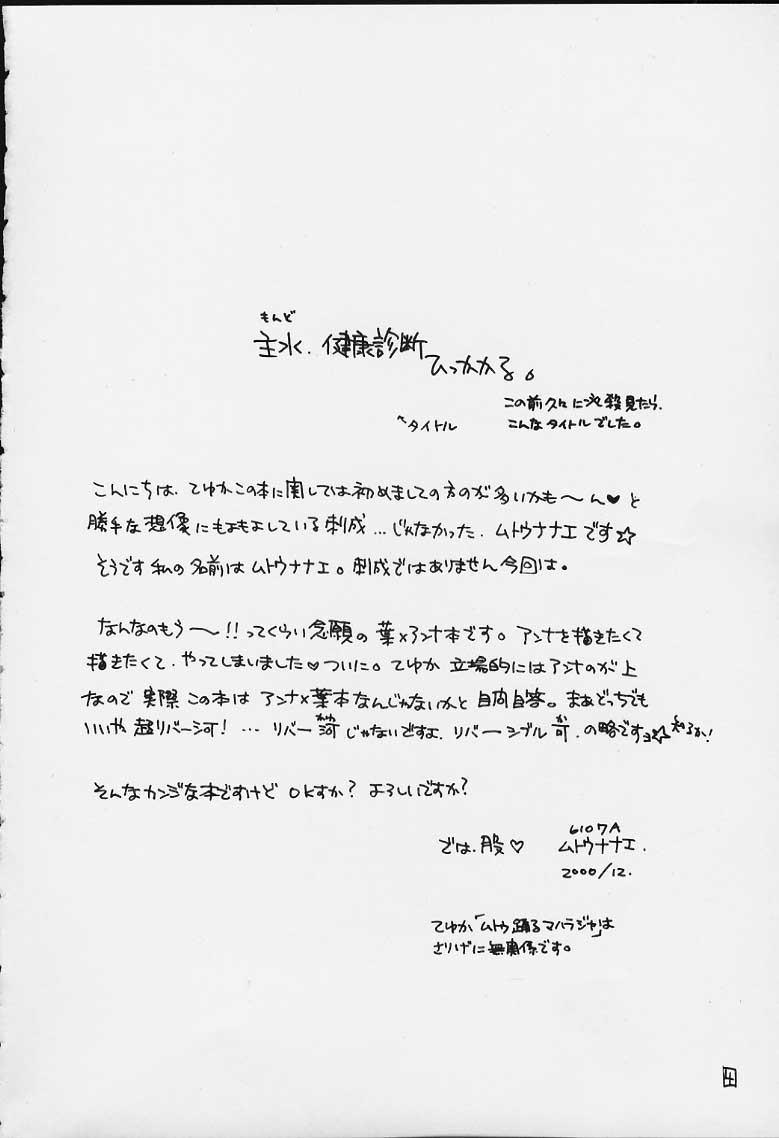 もんど
主水、健康診断
ひっかかる。
この前久々に必殺見たら、
↖タイトル
こんなタイトルでした。
こんにちは、てゆかこの本に関しては初めましての方のが多いかも〜ん♥と
勝手な想像にもよもよしている刺成…じゃなかった、ムトウナナエです☆
そうです私の名前はムトウナナエ。刺成ではありません今回は。
なんなのもう〜!!ってくらい念願の葉×アンナ本です。アンナを描きたくて
描きたくて、やってしまいました♥ついに。てゆか立場的にはアンナのが上
なので実際この本はアンナ×葉本なんじゃないかと自問自答。まあどっちでも
いいや超リバー河!…リバー河じゃないですよ、リバーシブル可、の略ですョ☆知るか!
そんなカンジな本ですけどOKすか?よろしいですか?
では、股♡
6107A
ムトウナナエ.
2000/12.
てゆか「ムトウ踊るマハラジャ」は
さりげに無関係です。
4